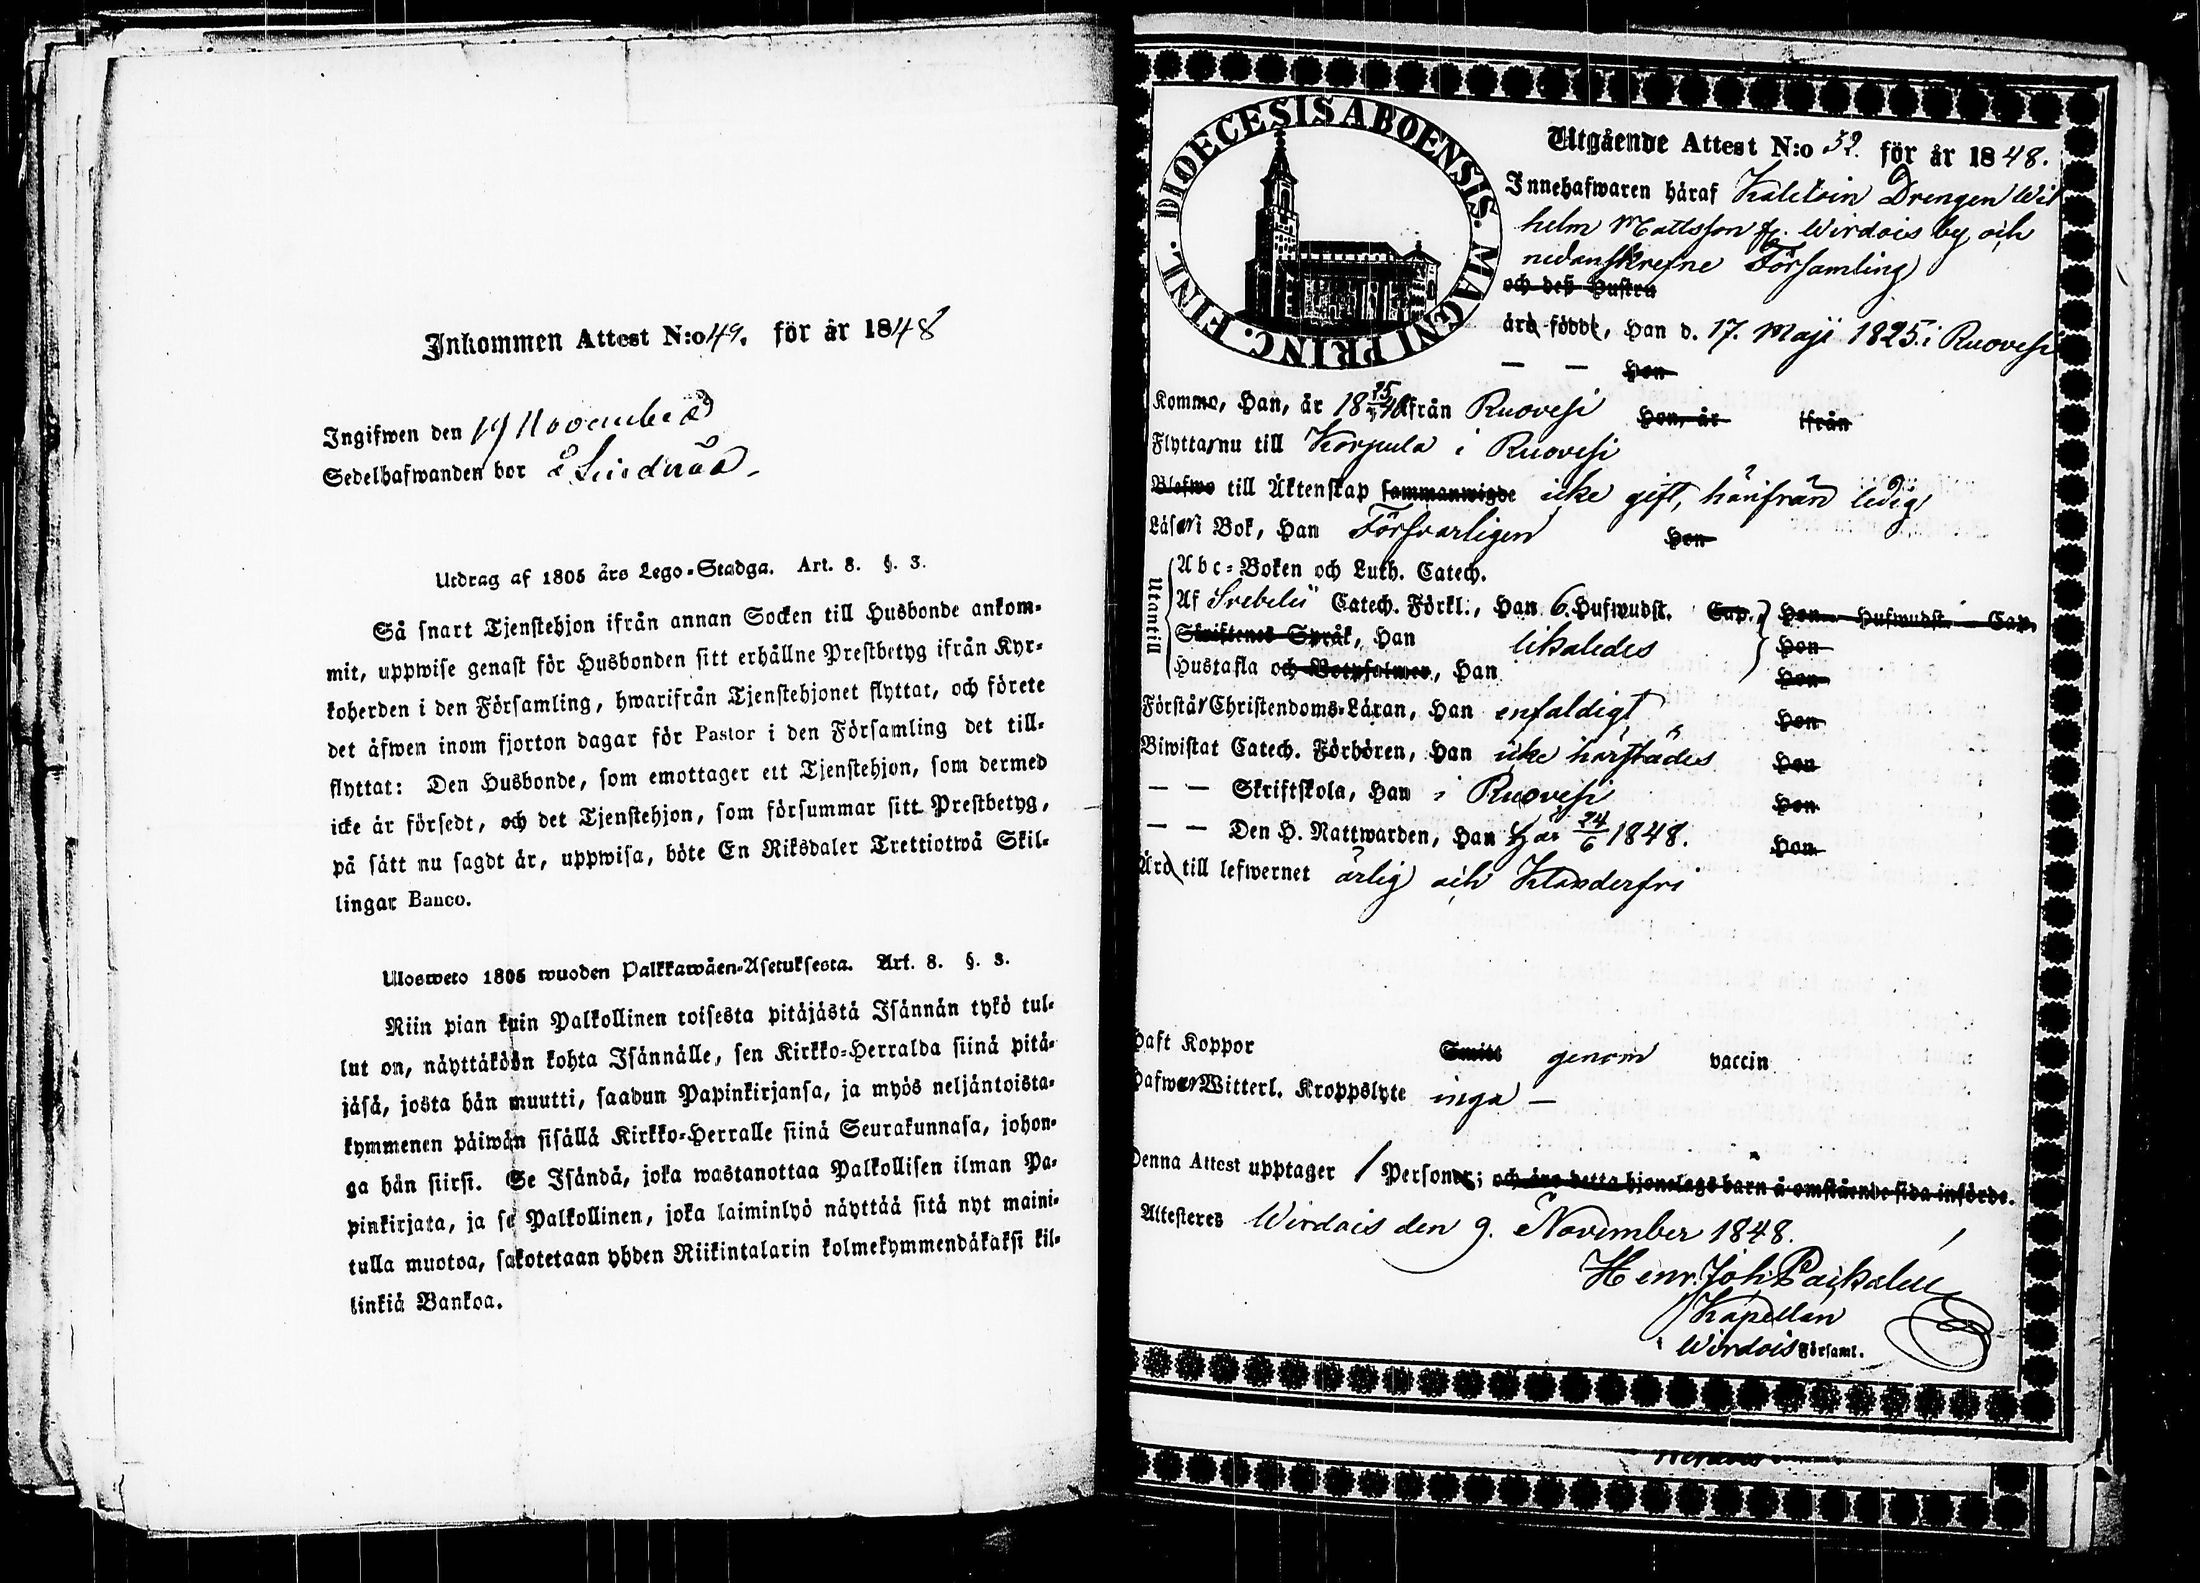 Inkommen Attest N:o 49. för år 1848
Ingifwen den 19 November
Sedelhafwanden bor
Utdrag af 1805 års Lego-Stadga. Art. 8. §. 3.
Så snart Tjenstehjon ifrån annan Socken till Husbonde ankom-
mit, uppwise genast för Husbonden sitt erhållne Prestbetyg ifrån Kyr-
koherden i den Församling, hwarifrån Tjenstehjonet flyttat, och förete
det äfwen inom fjorton dagar för Pastor i den Församling det till-
flyttat: Den Husbonde, som emottager ett Tjenstehjon, som dermed
icke är försedt, och det Tjenstehjon, som försummar sitt Prestbetyg,
på sätt nu sagdt är, uppwisa, böte En Riksdaler Trettiotwå Skil-
lingar Banco.
Ulosweto 1805 wuoden Palkkawäen-Asetuksesta. Art. 8. §. 3.
Niin pian kuin Palkollinen toisesta pitäjästä Isännän tykö tul-
lut on, näyttäköön kohta Isännälle, sen Kirkko-Herralda siinä pitä-
jäsä, josta hän muutti, saadun Papinkirjansa, ja myös neljäntoista-
kymmenen päiwän sisällä Kirkko-Herralle siinä Seurakunnasa, johon-
ga hän siirsi. Se Isändä, joka wastanottaa Palkollisen ilman Pa-
pinkirjata, ja se Palkollinen, joka laiminlyö näyttää sitä nyt maini-
tulla muotoa, sakotetaan yhden Riikintalarin kolmekymmendäkaksi kil-
linkiä Bankoa.
DIOECESIS ABOENSIS. MAGNI PRINC. FINL.
Utgående Attest N:o 32. för år 1848.
Innehafwaren häraf Drengen Wil
helm Mattsson fr. Wirdois by och
nedanskrefne Församling
och deß Hustru
äro födde, Han d. 17. Maji 1825. i Ruovesi
— — Hon
Kommo, Han, år 18 ifrån Ruovesi Hon, år ifrån
Flytta nu till Korpula i Ruovesi
Blefwo till Äktenskap sammanwigde icke gift, härifrån ledig
Läsa i Bok, Han Försvarligen Hon
Utantill
Abc-Boken och Luth. Catech.
Af Svebelii Catech. Förkl., Han 6. Hufwudst. Cap. Hon Hufwudst. Cap.
Skriftenes Språk, Han likaledes Hon
Hustafla och Botpsalmer, Han Hon
Förstå Christendoms-Läran, Han enfaldigt Hon
Biwistat Catech. Förhören, Han icke härstädes Hon
— — Skriftskola, Han i Ruovesi Hon
— — Den H. Nattwarden, Han här 24/6 1848. Hon
Äro till lefwernet ärlig och Klanderfri
Haft Koppor Smitt genom vaccin
Hafwa Witterl. Kroppslyte inga —
Denna Attest upptager 1 Personer; och äro detta hjonelags barn å omstående sida införde.
Attesteres Wirdois den 9. November 1848.
Henr. Joh.
Kapellan
i Wirdois Församl.